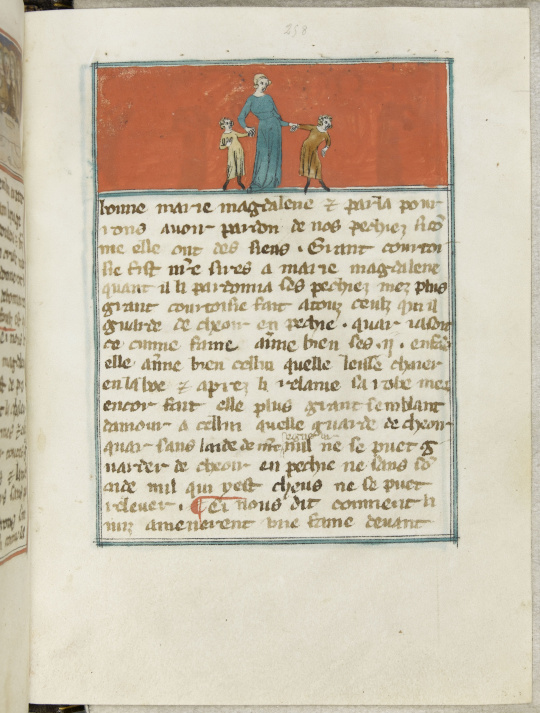 258
bonne marie magdalene & par la pour
rons auoir pardon de nos pechiez si co
me elle out des siens . Grant courtoi
sie fist nr̄e sires a marie magdalene
quant il li pardonna ses pechiez mez plus
grant courtoisie fait a touz ceulz qui il
guarde de cheoir en pechie . quar iasoit
ce comme fame aīme bien ses .ij. enfās
elle aīme bien cellui quelle leisse chaier
en la boe & aprez li relaine sa robe mez
encor fait elle plus grant semblant
damour a cellui quelle guarde de cheoir
quar sans laide de nr̄e nul ne se puet g
uarder de cheoir en pechie ne sans sō
aide nul qui yest cheus ne se puet
releuer . Cei nous dit comment li
iuis amenerent vne fame deuant